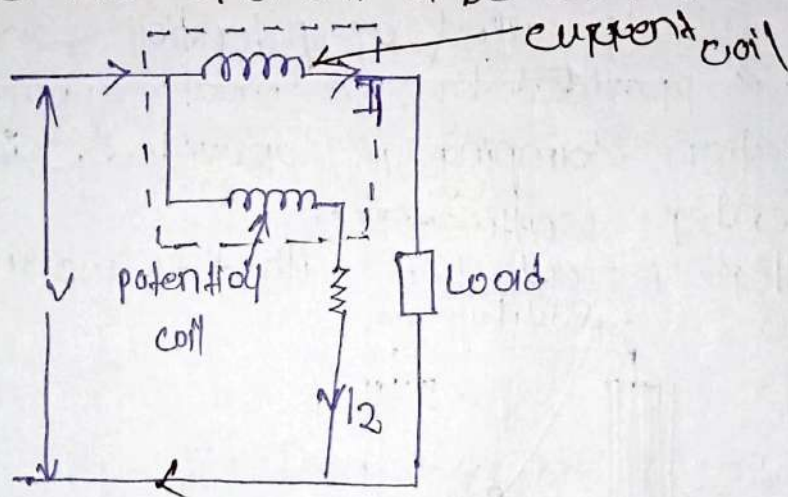 current coil
I
V
potential
coil
Load
I2